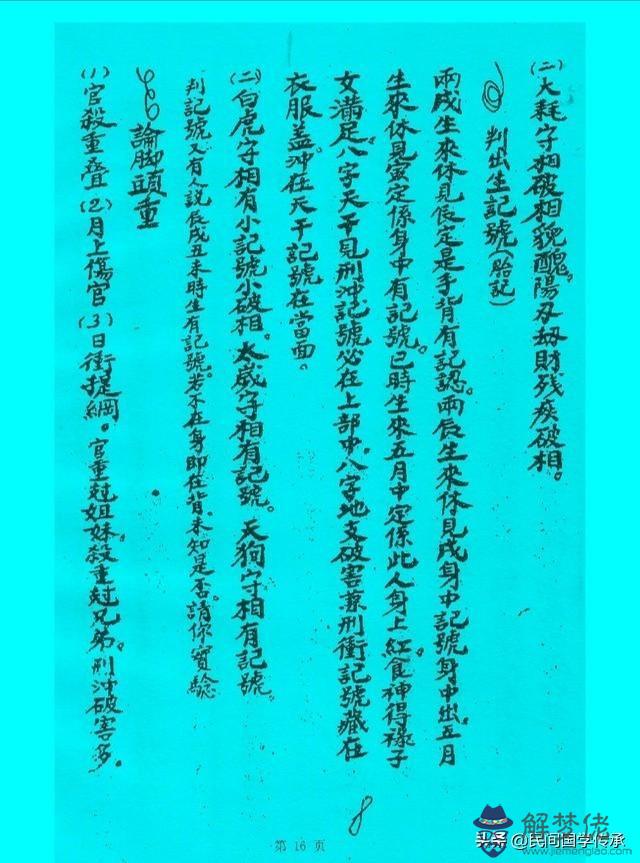 (二)大耗守相破相貌醜。陽刃劫財殘疾破相。
判出生記號(胎記)
兩戌生來休見辰定是手背有記認。兩辰生來休見戌身中記號身中出。五月
生來休見寅定係身中有記號。巳時生來五月中定係此人身上紅。食神得祿子
女滿足。八字天干見刑沖記號必在上部中。八字地支破害兼刑衝記號藏在
衣服蓋。沖在天干記號在當面。
(二)白虎守相有小記號小破相。太歲守相有記號。天狗守相有記號。
判記號又有人説辰戌丑未時生有記號。若不在身即在背。未知是否。請你實驗
論脚頭重
(1)官殺重叠(2)月上傷官(3)日衝提綱。官重尅姐妹。殺重尅兄弟。刑沖破害多。
8
第 16 页
头条 @民间国学传承
解梦佬
www.jiemenglao.com